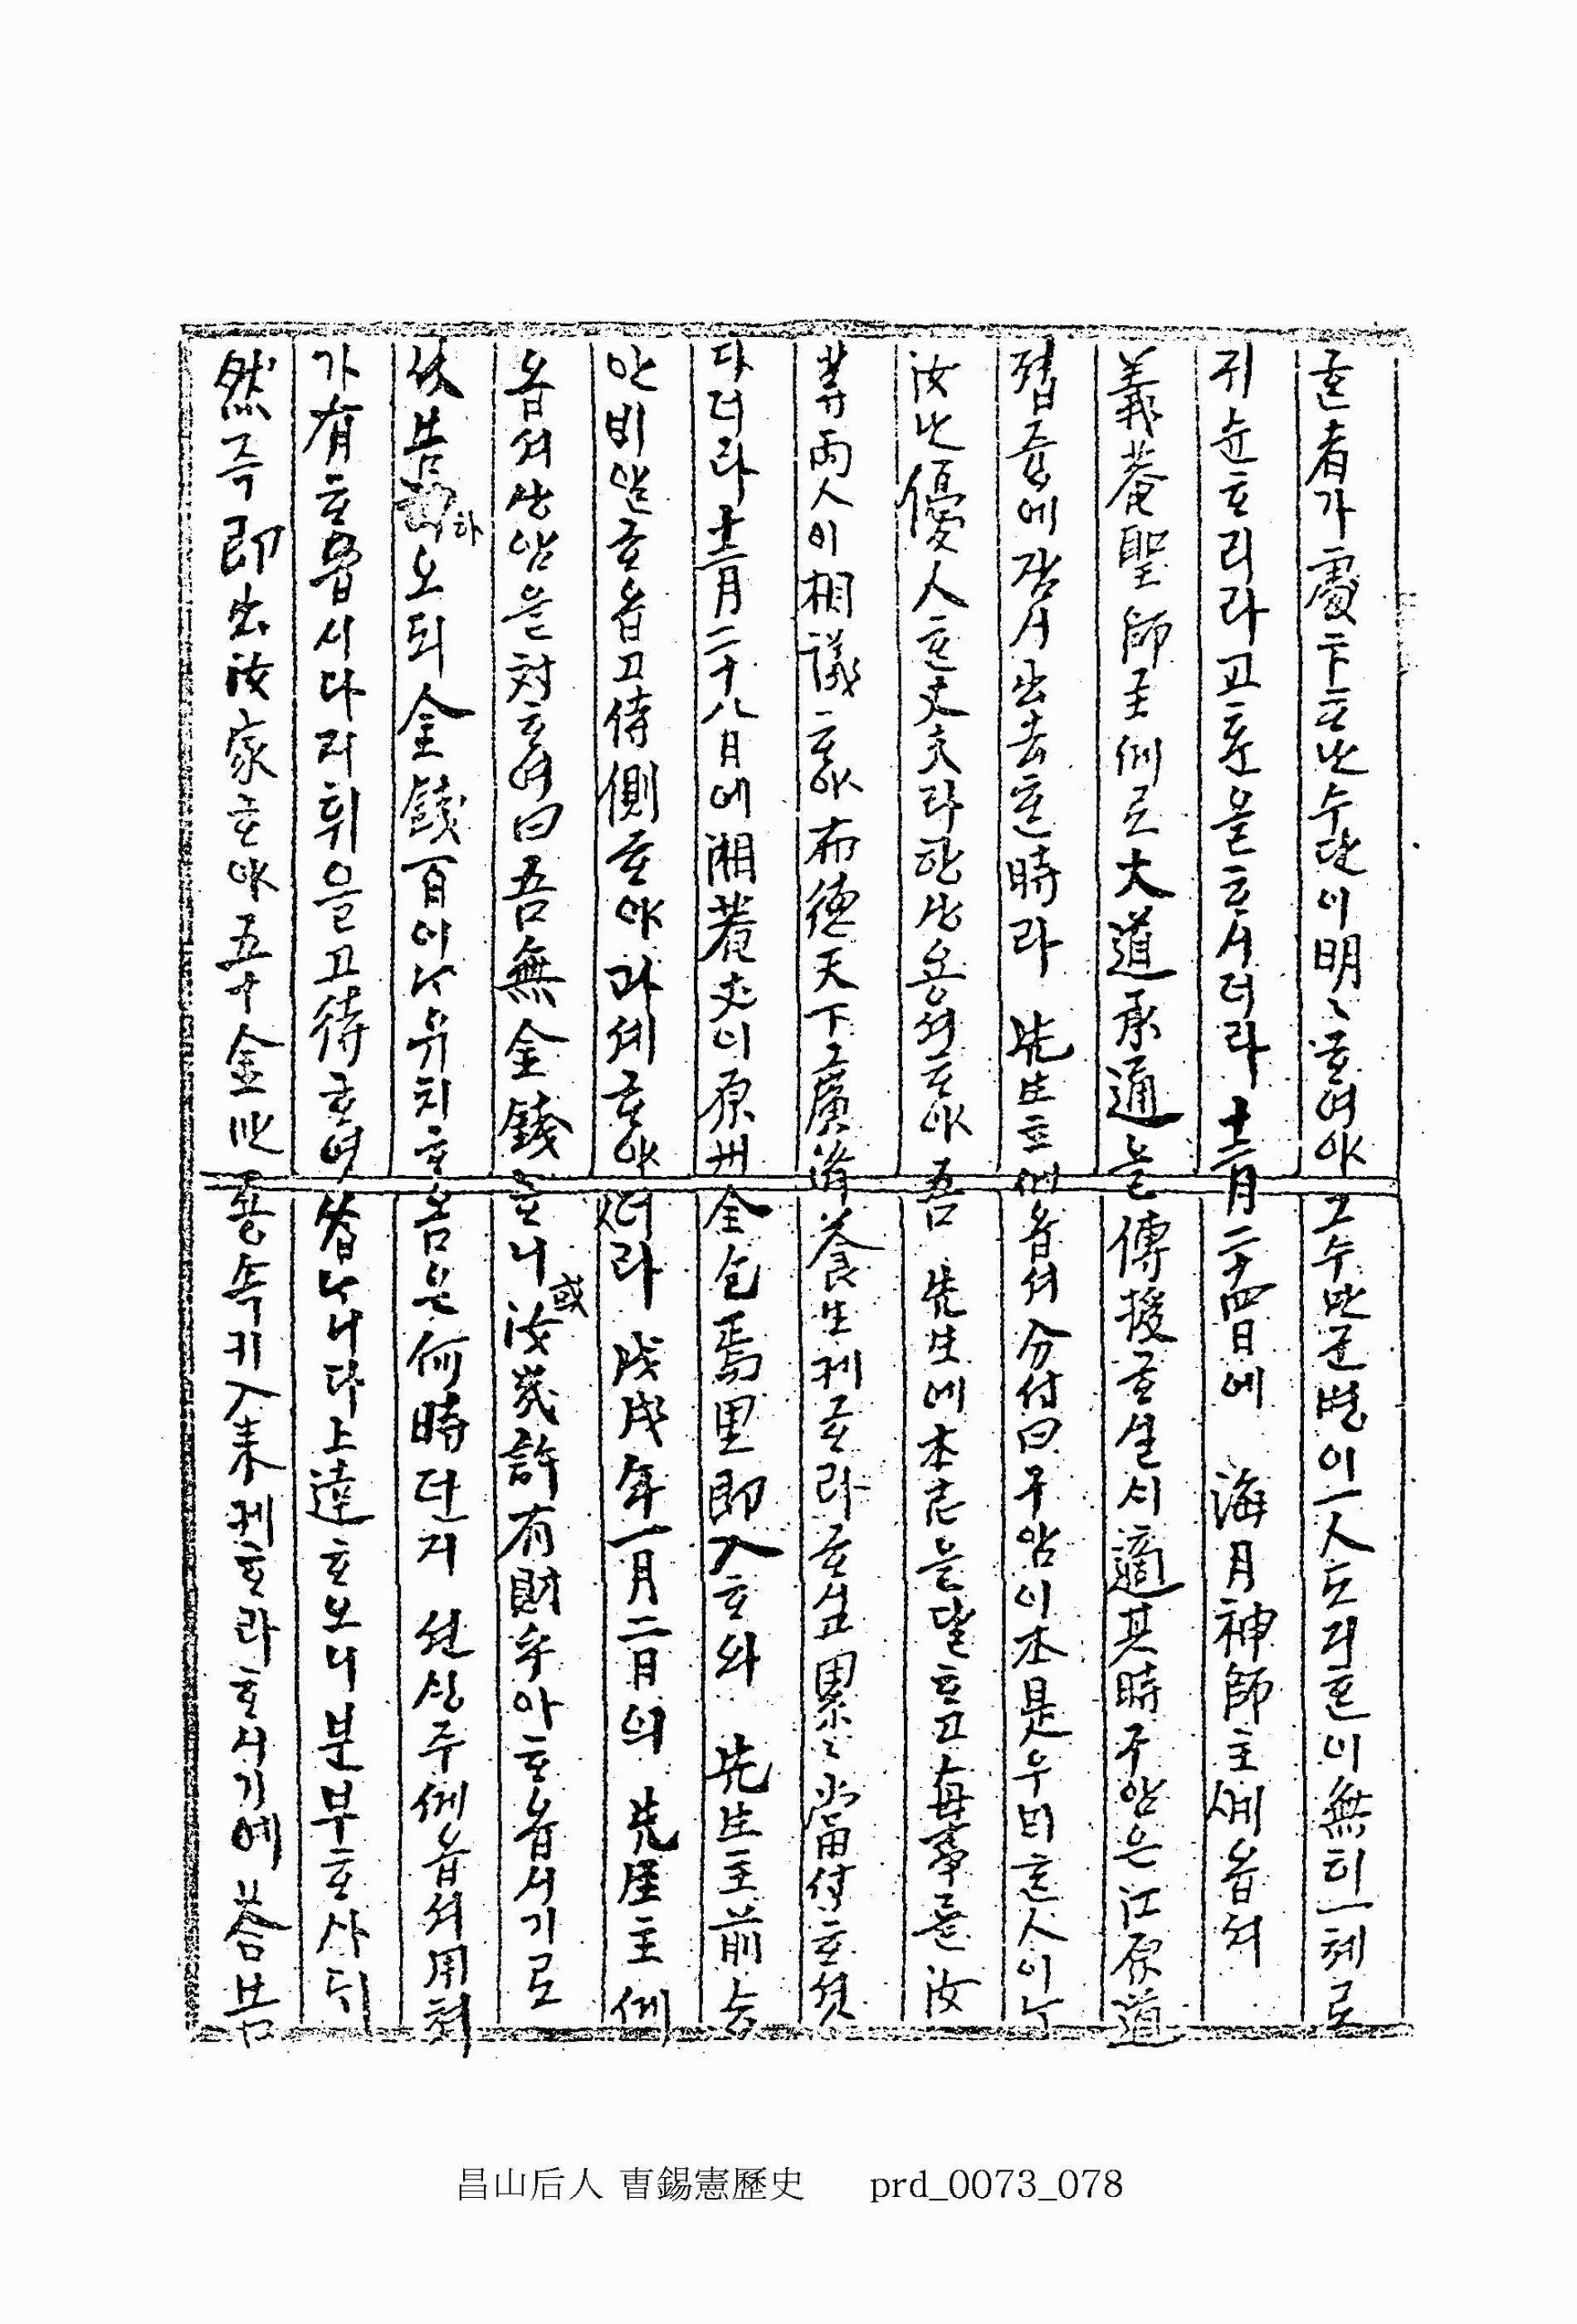 ᄒᆞᆫ者가 處卞ᄒᆞ면 수단이 明〻ᄒᆞ여야 그 수만군병이 一人도 긔흔이 無히 一체로
귀순ᄒᆞ리라 고훈을 ᄒᆞ시더라 十二月 二十四日에 海月神師主게옵셔
義菴聖師主께로 大道承通을 傳授ᄒᆞ실시 適其時 구암은 江原道
졉즁에 잠시 出去ᄒᆞᆫ 時라 先生主게옵셔 分付曰 구암이 本是 우다ᄒᆞᆫ 人이나
汝比優人ᄒᆞᆫ 丈夫라 판상용셔ᄒᆞ야 吾 先生에 本志을 달ᄒᆞ고 每事를 汝
等兩人이 相議ᄒᆞ야 布德天下 廣濟蒼生케 ᄒᆞ라 ᄒᆞ고 累〻當付ᄒᆞ셧
다더라 十二月 二十八日에 湘菴丈이 原州 全包焉里 即入ᄒᆞ와 先生主前 승
안비알ᄒᆞ옵고 侍側ᄒᆞ야 과셰ᄒᆞ야더라 戊戌年 一月 二日의 先生主게
옵셔 상암을 対ᄒᆞ여 曰 吾無金錢ᄒᆞ니 或 汝幾許有財乎아 ᄒᆞ옵시기로
伏告하오되 金錢百이나 유치ᄒᆞ옴은 何時던지 션싱주게옵셔 用쳐
가 有ᄒᆞ옵시다 려휘을 고待ᄒᆞ여습나니다 上達ᄒᆞ오니 분부ᄒᆞ사되
然즉 即出汝家ᄒᆞ야 五十金 속키 入來케 ᄒᆞ라 ᄒᆞ시기예 答告
昌山后人 曺錫憲歷史 prd_0073_078